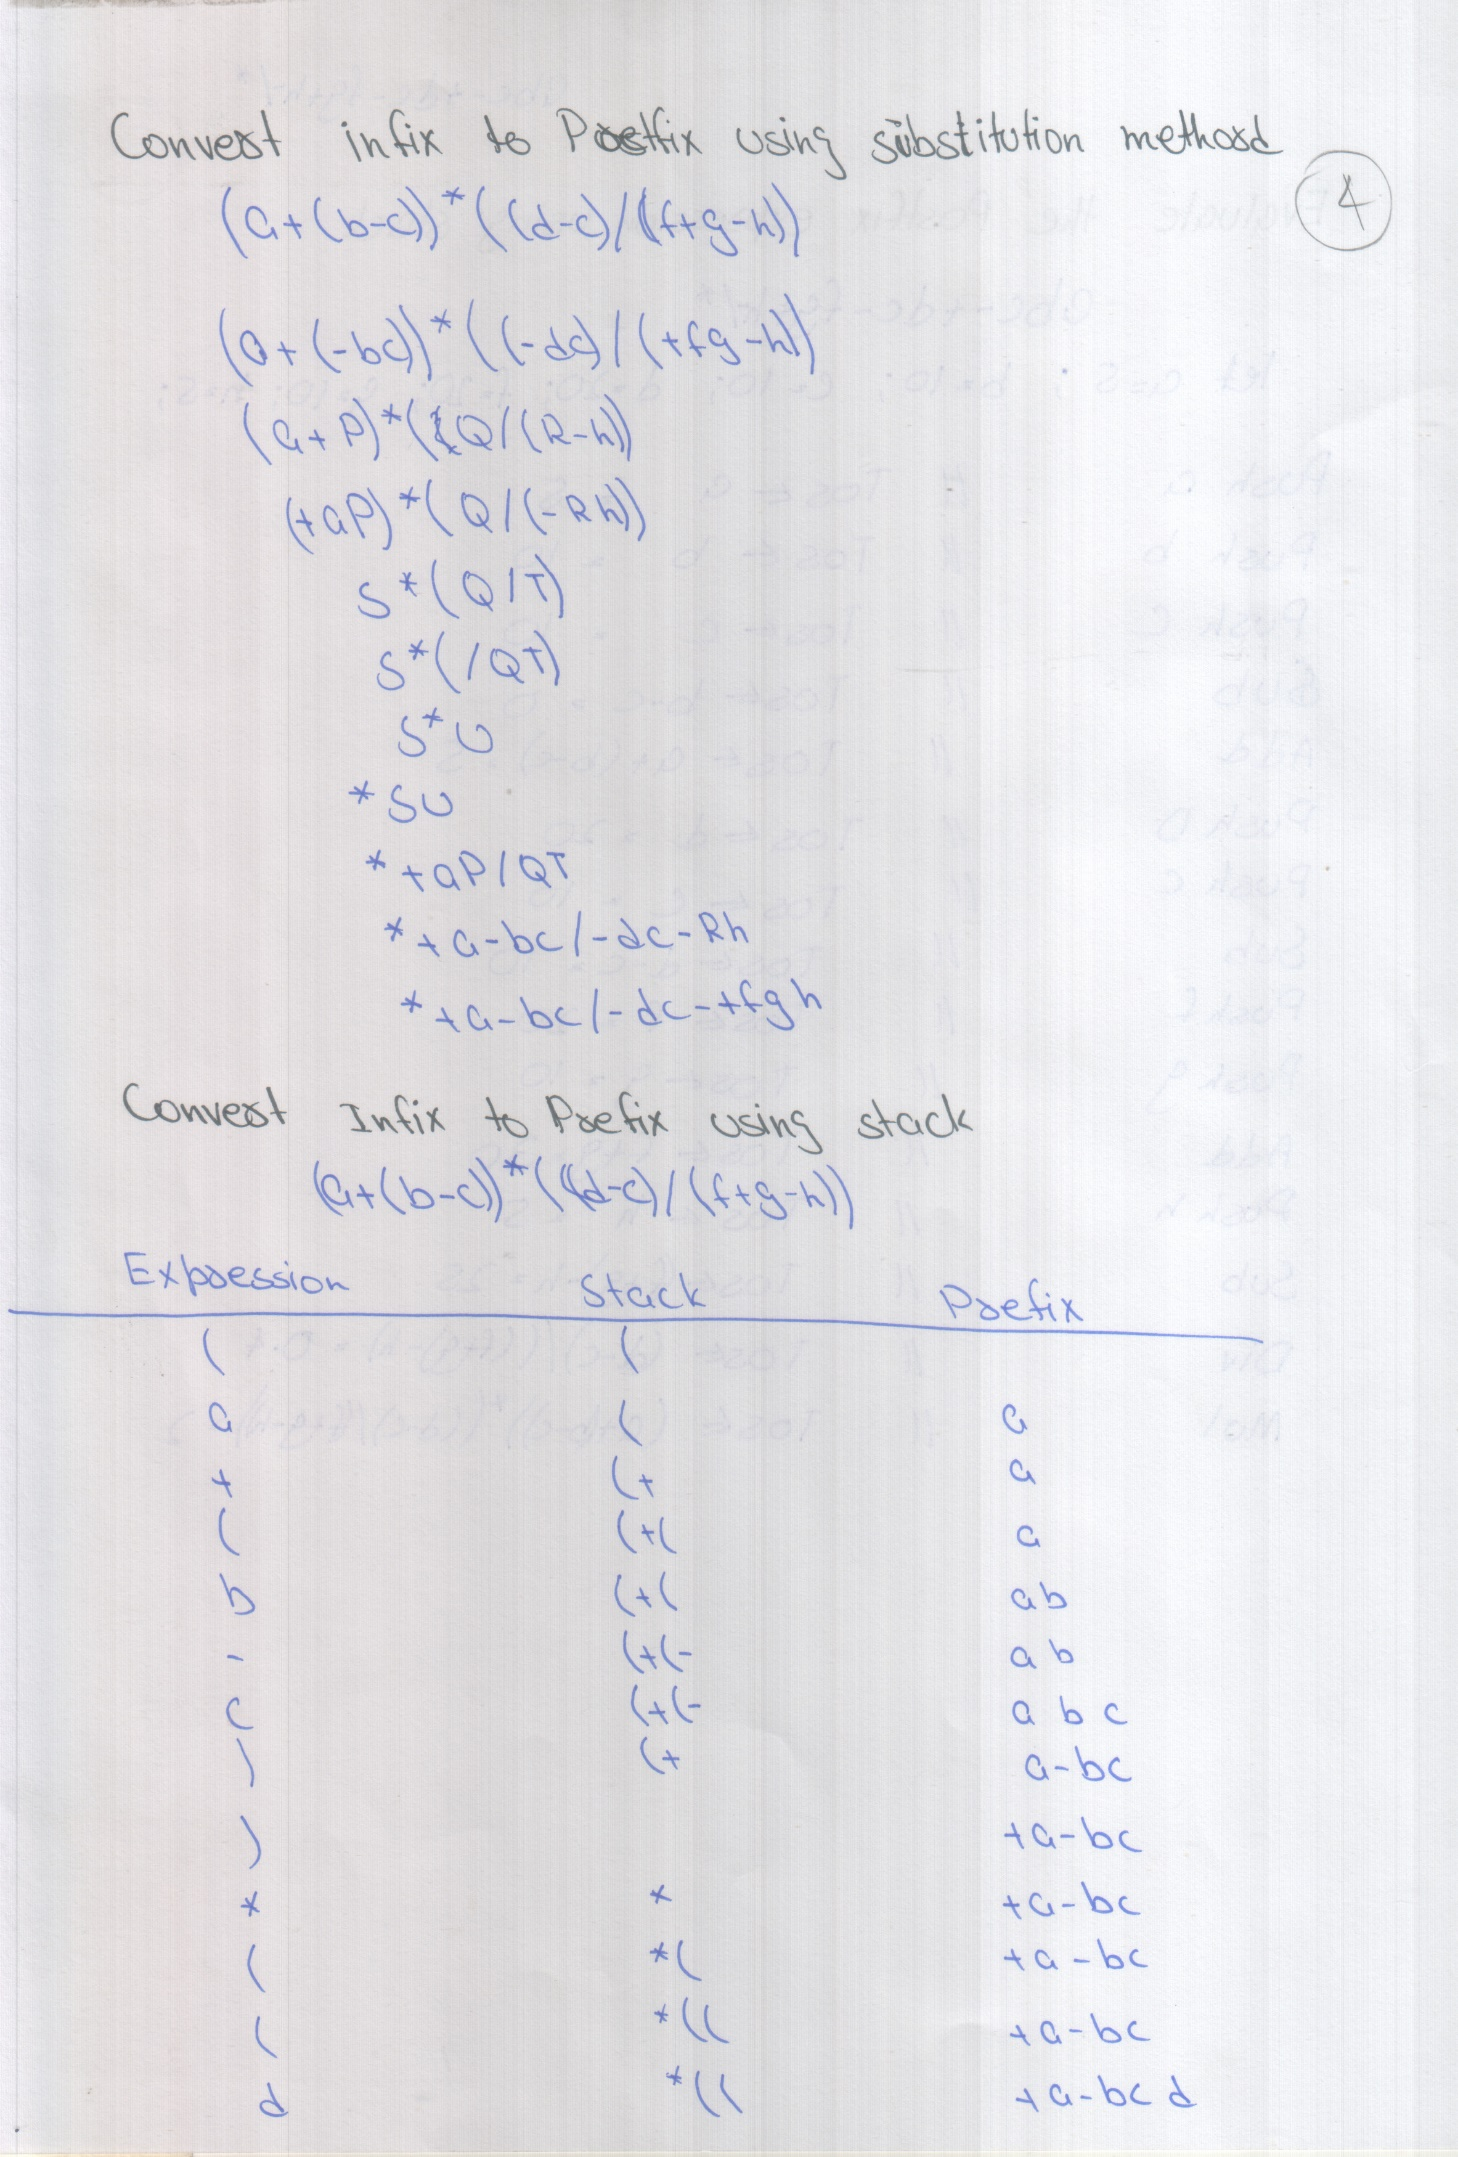 Convert infix to Prefix using substitution method
4
(a+(b-c))*((d-c)/(f+g-h))
(a+(-bc))*((-dc)/(+fg-h))
(a+P)*(Q/(R-h))
(+aP)*(Q/(-Rh))
S*(Q/T)
S*(/QT)
S*U
*SU
*+aP/QT
*+a-bc/-dc-Rh
*+a-bc/-dc-+fgh
Convert Infix to Prefix using stack
(a+(b-c))*((d-c)/(f+g-h))
Expression Stack Prefix
( (
a ( a
+ (+ a
( (+( a
b (+( ab
- (+(- ab
c (+(- abc
) (+ a-bc
) +a-bc
* * +a-bc
( *( +a-bc
( *(( +a-bc
d *(( +a-bcd